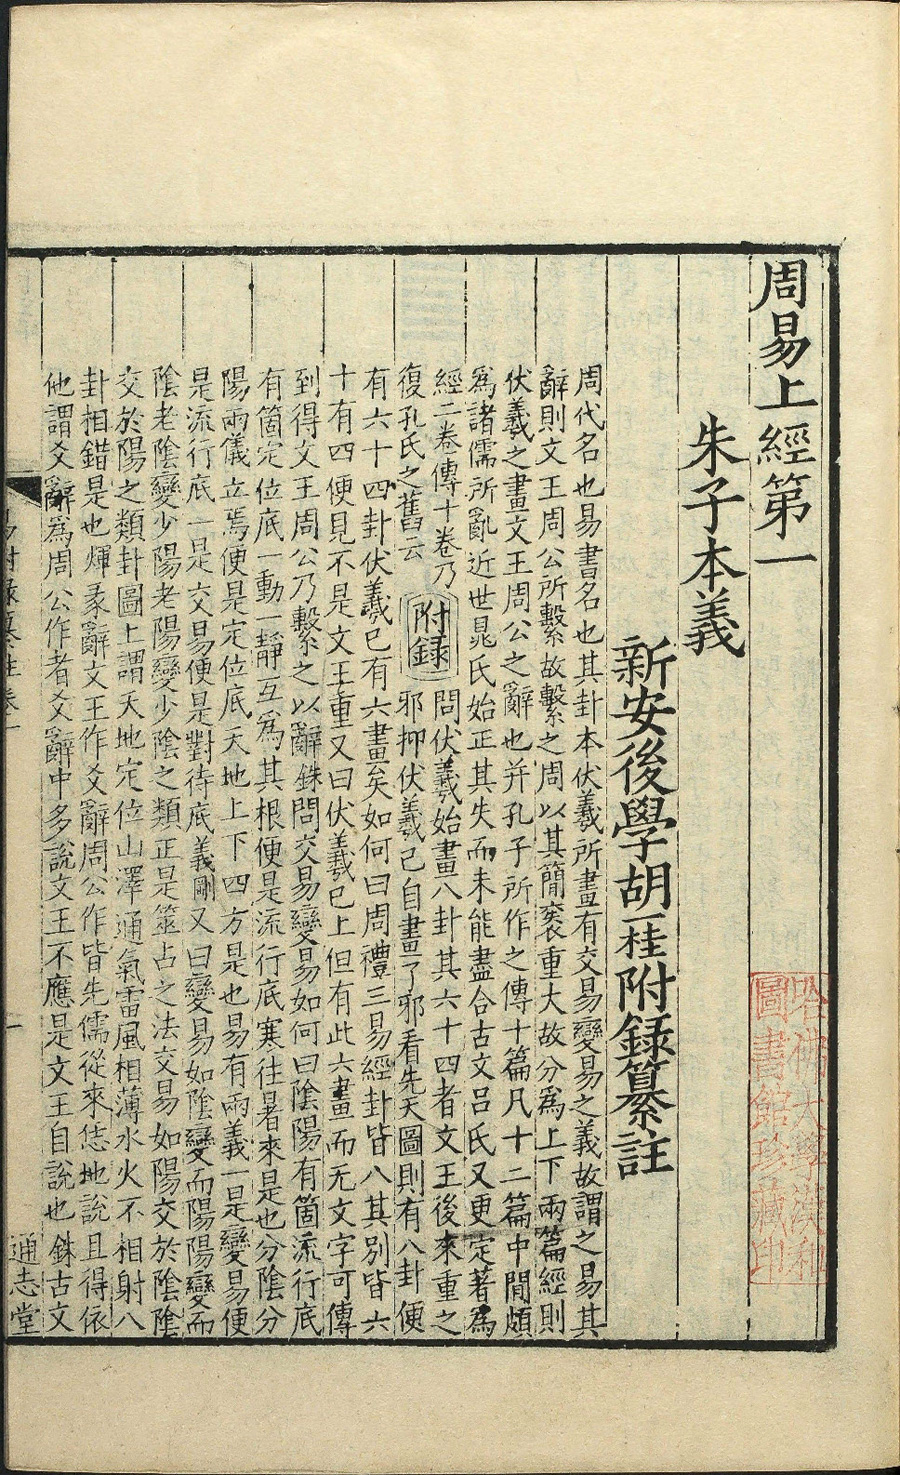 周易上經第一
朱子本義
新安後學胡一桂附録纂註
周代名也易書名也其卦本伏羲所畫有交易變易之義故謂之易其
辭則文王周公所繫故繫之周以其簡袠重大故分爲上下兩篇經則
伏羲之畫文王周公之辭也并孔子所作之傳十篇凡十二篇中間頗
爲諸儒所亂近世晁氏始正其失而未能盡合古文吕氏又更定著爲
經二卷傳十卷乃
復孔氏之舊云
附録
問伏羲始畫八卦其六十四者文王後來重之
邪抑伏羲已自畫了邪看先天圖則有八卦便
有六十四卦伏羲已有六畫矣如何曰周禮三易經卦皆八其别皆六
十有四便見不是文王重又曰伏羲已上但有此六畫而无文字可傳
到得文王周公乃繫之以辭銖問交易變易如何曰陰陽有箇流行底
有箇定位底一動一靜互爲其根便是流行底寒往暑來是也分陰分
陽兩儀立焉便是定位底天地上下四方是也易有兩義一是變易便
是流行底一是交易便是對待底義剛又曰變易如陰變而陽陽變而
陰老陰變少陽老陽變少陰之類正是筮占之法交易如陽交於陰陰
交於陽之類卦圖上謂天地定位山澤通氣雷風相薄水火不相射八
卦相錯是也煇彖辭文王作爻辭周公作皆先儒從來恁地說且得依
他謂爻辭爲周公作者爻辭中多說文王不應是文王自說也銖古文
易附録纂註卷一
一
通志堂
哈佛大學漢和
圖書館珍藏印